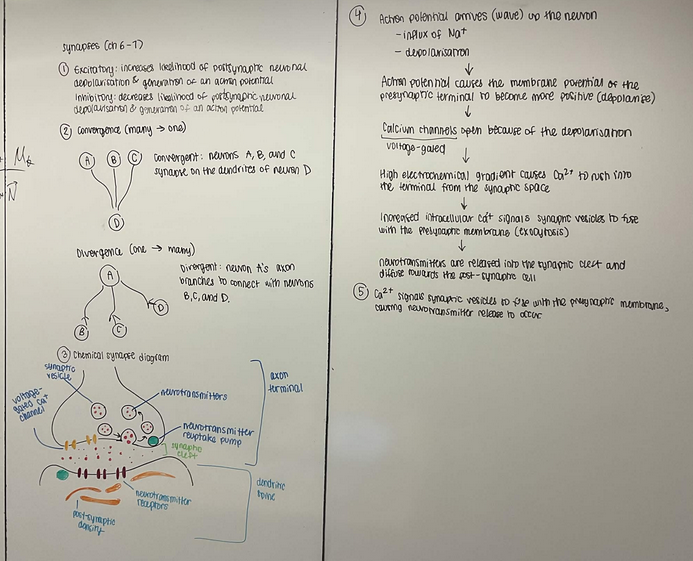 synapses (ch 6-7)
① Excitatory: increases likelihood of postsynaptic neuronal
depolarisation & generation of an action potential
Inhibitory: decreases likelihood of postsynaptic neuronal
depolarisation & generation of an action potential
② Convergence (many → one)
A B C
D
Convergent: neurons A, B, and C
synapse on the dendrites of neuron D
Divergence (one → many)
A
B C D
Divergent: neuron A's axon
branches to connect with neurons
B, C, and D.
③ Chemical synapse diagram
synaptic
vesicle
voltage-
gated Ca+
channel
neurotransmitters
neurotransmitter
reuptake pump
synaptic
cleft
axon
terminal
neurotransmitter
receptors
post-synaptic
density
dendritic
spine
④ Action potential arrives (wave) up the neuron
- influx of Na+
- depolarisation
↓
Action potential causes the membrane potential of the
presynaptic terminal to become more positive (depolarise)
↓
Calcium channels open because of the depolarisation
voltage-gated
↓
High electrochemical gradient causes Ca2+ to rush into
the terminal from the synaptic space
↓
Increased intracellular Ca2+ signals synaptic vesicles to fuse
with the presynaptic membrane (exocytosis)
↓
neurotransmitters are released into the synaptic cleft and
diffuse towards the post-synaptic cell
⑤ Ca2+ signals synaptic vesicles to fuse with the presynaptic membrane,
causing neurotransmitter release to occur